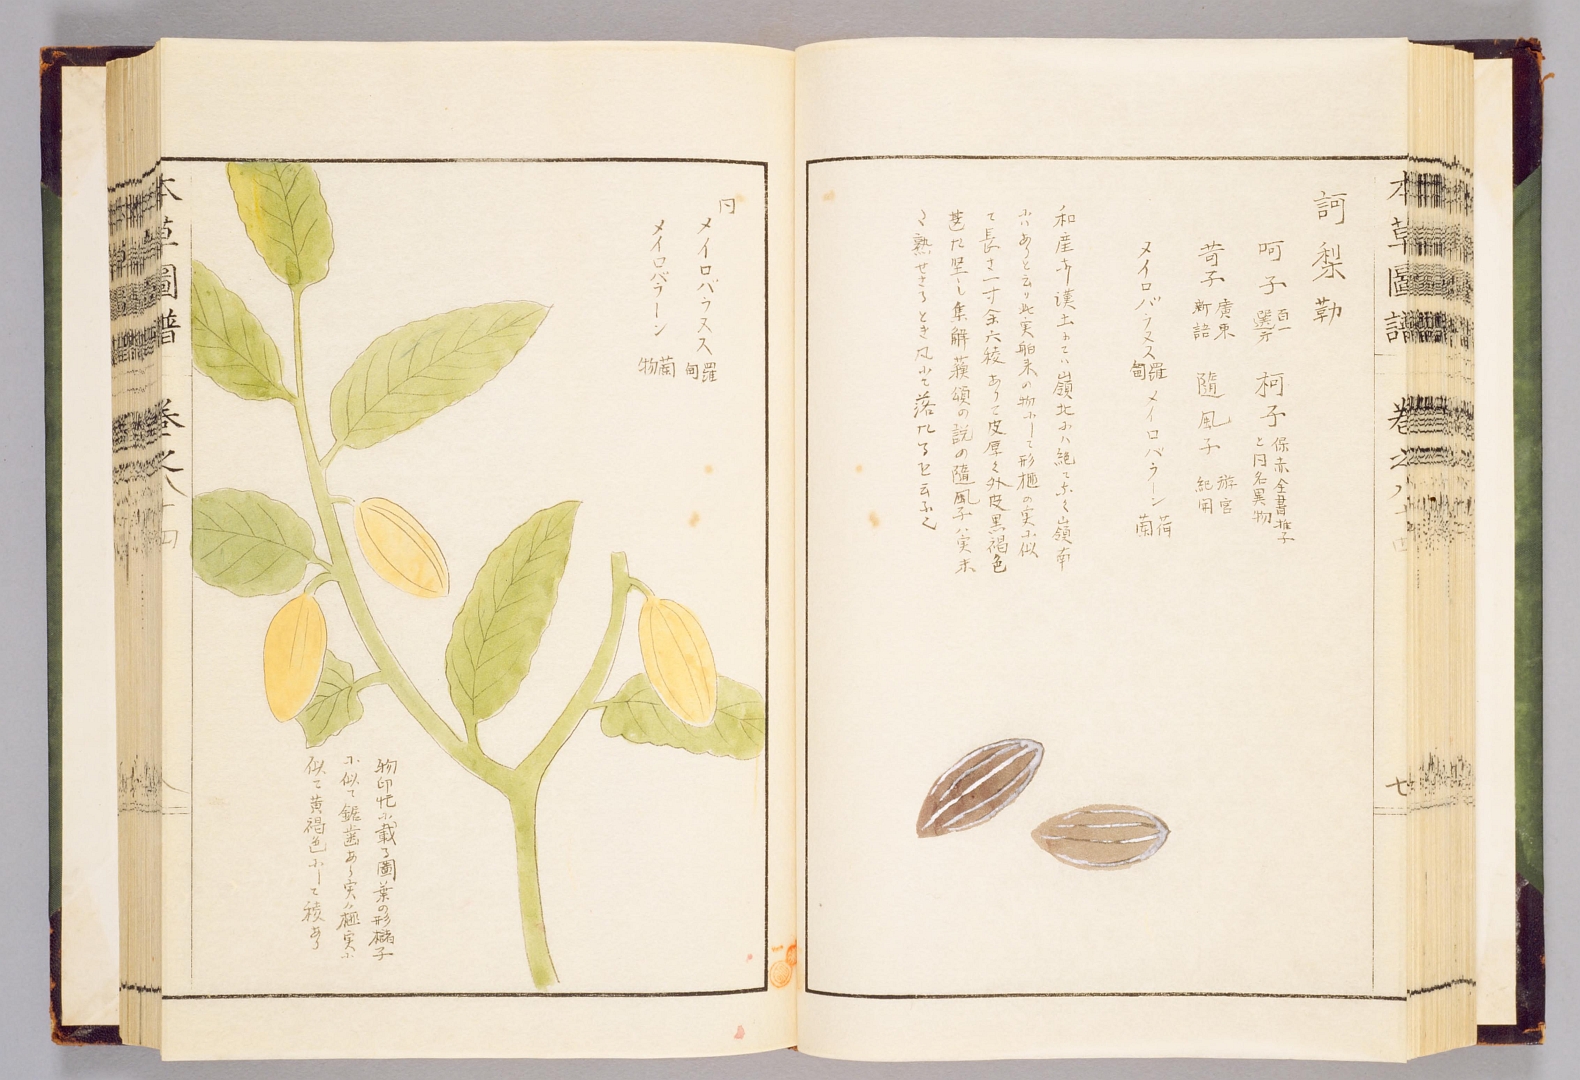 本草圖譜　卷之八十四
七
訶梨勒
呵子 百一選方　柯子 保赤全書推子と同名異物
苛子 廣東新語　隨風子 游宦紀聞
メイロバラヌス 羅甸　メイロバラーン 荷蘭
和産亦漢土にてハ嶺北にハ絶てなく嶺南
にありと云り此実舶来の物にして形榧の実に似
て長さ一寸余六稜ありて皮厚く外皮黒褐色
甚た堅し集解蘓頌の説の隨風子ハ実未
た熟せさるとき風にて落たるを云ふ也
同
メイロバラヌス 羅甸
メイロバラーン 蘭物
物印忙に載る圖葉の形櫧子
に似て鋸歯あり実ハ榧実に
似て黄褐色にして稜あり
本草圖譜　卷之八十四